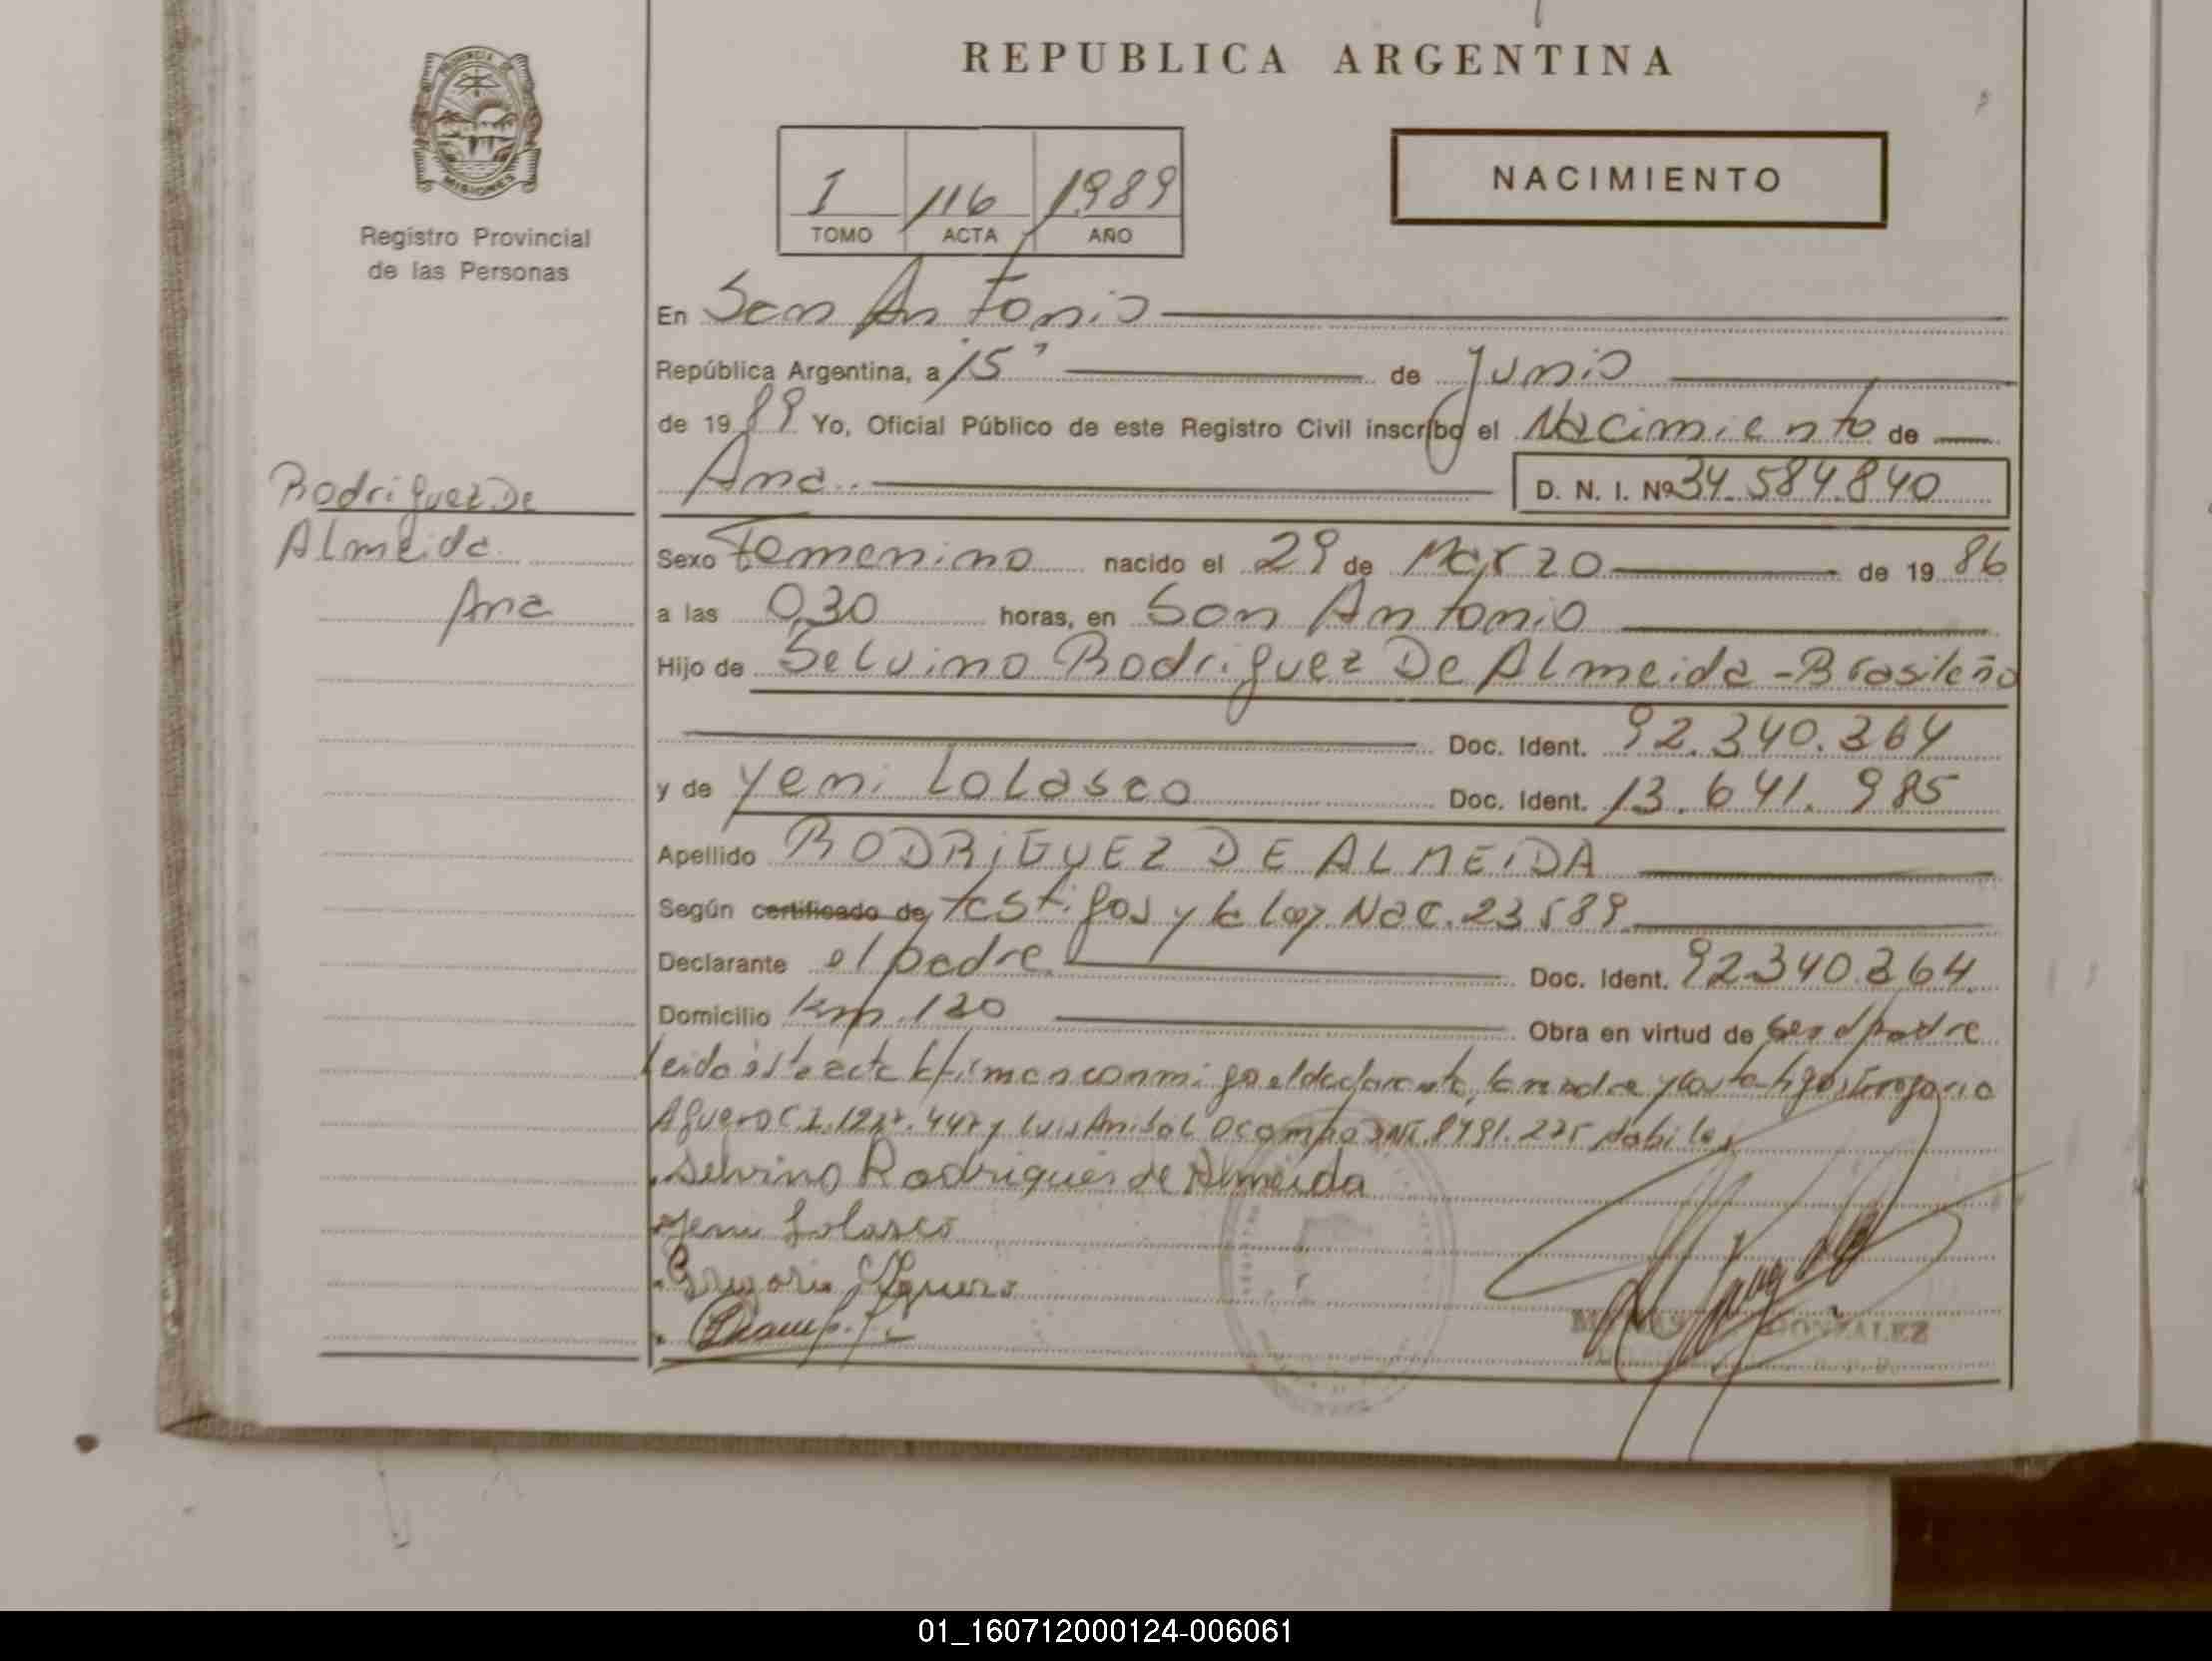 REPUBLICA ARGENTINA
PROVINCIA DE
MISIONES
Registro Provincial
de las Personas
I 116 1989
TOMO ACTA AÑO
NACIMIENTO
En San Antonio
República Argentina, a 15 de Junio
de 1989 Yo, Oficial Público de este Registro Civil inscribo el Nacimiento de
Ana D. N. I. Nº 34.584.840
Rodriguez De
Almeida
Ana
Sexo Femenino nacido el 29 de Marzo de 1986
a las 0,30 horas, en San Antonio
Hijo de Selvino Rodriguez De Almeida - Brasileño
Doc. Ident. 92.340.364
y de Yeni Lolasco Doc. Ident. 13.641.985
Apellido RODRIGUEZ DE ALMEIDA
Según certificado de testigos y la ley Nac. 23589
Declarante el padre Doc. Ident. 92.340.364
Domicilio km. 120 Obra en virtud de ser el padre
Leida esta acta la firman conmigo el declarante, la madre y los testigos
Aguero C.I. y Luis Anibal Ocampo habiles
Selvino Rodrigues de Almeida
Yeni Lolasco
Gregorio Aguero
GONZALEZ
01_160712000124-006061